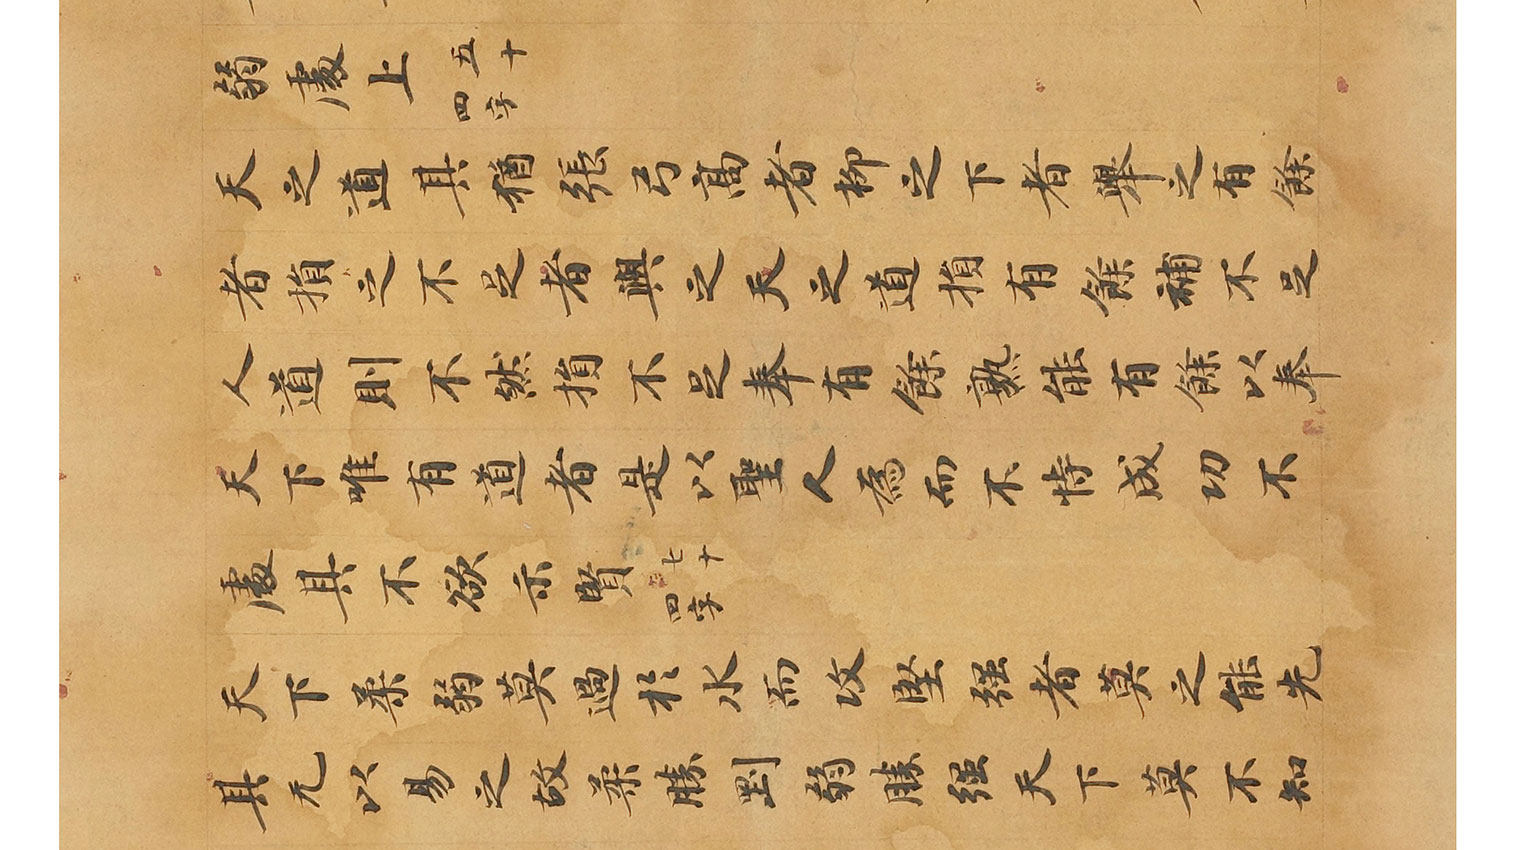 弱處上 五十四字
天之道其猶張弓高者抑之下者舉之有餘
者損之不足者與之天之道損有餘補不足
人道則不然損不足奉有餘熟能有餘以奉
天下唯有道者是以聖人為而不恃成功不
處其不欲示賢 七十四字
天下柔弱莫過於水而攻堅强者莫之能先
其无以易之故柔勝剛弱勝强天下莫不知